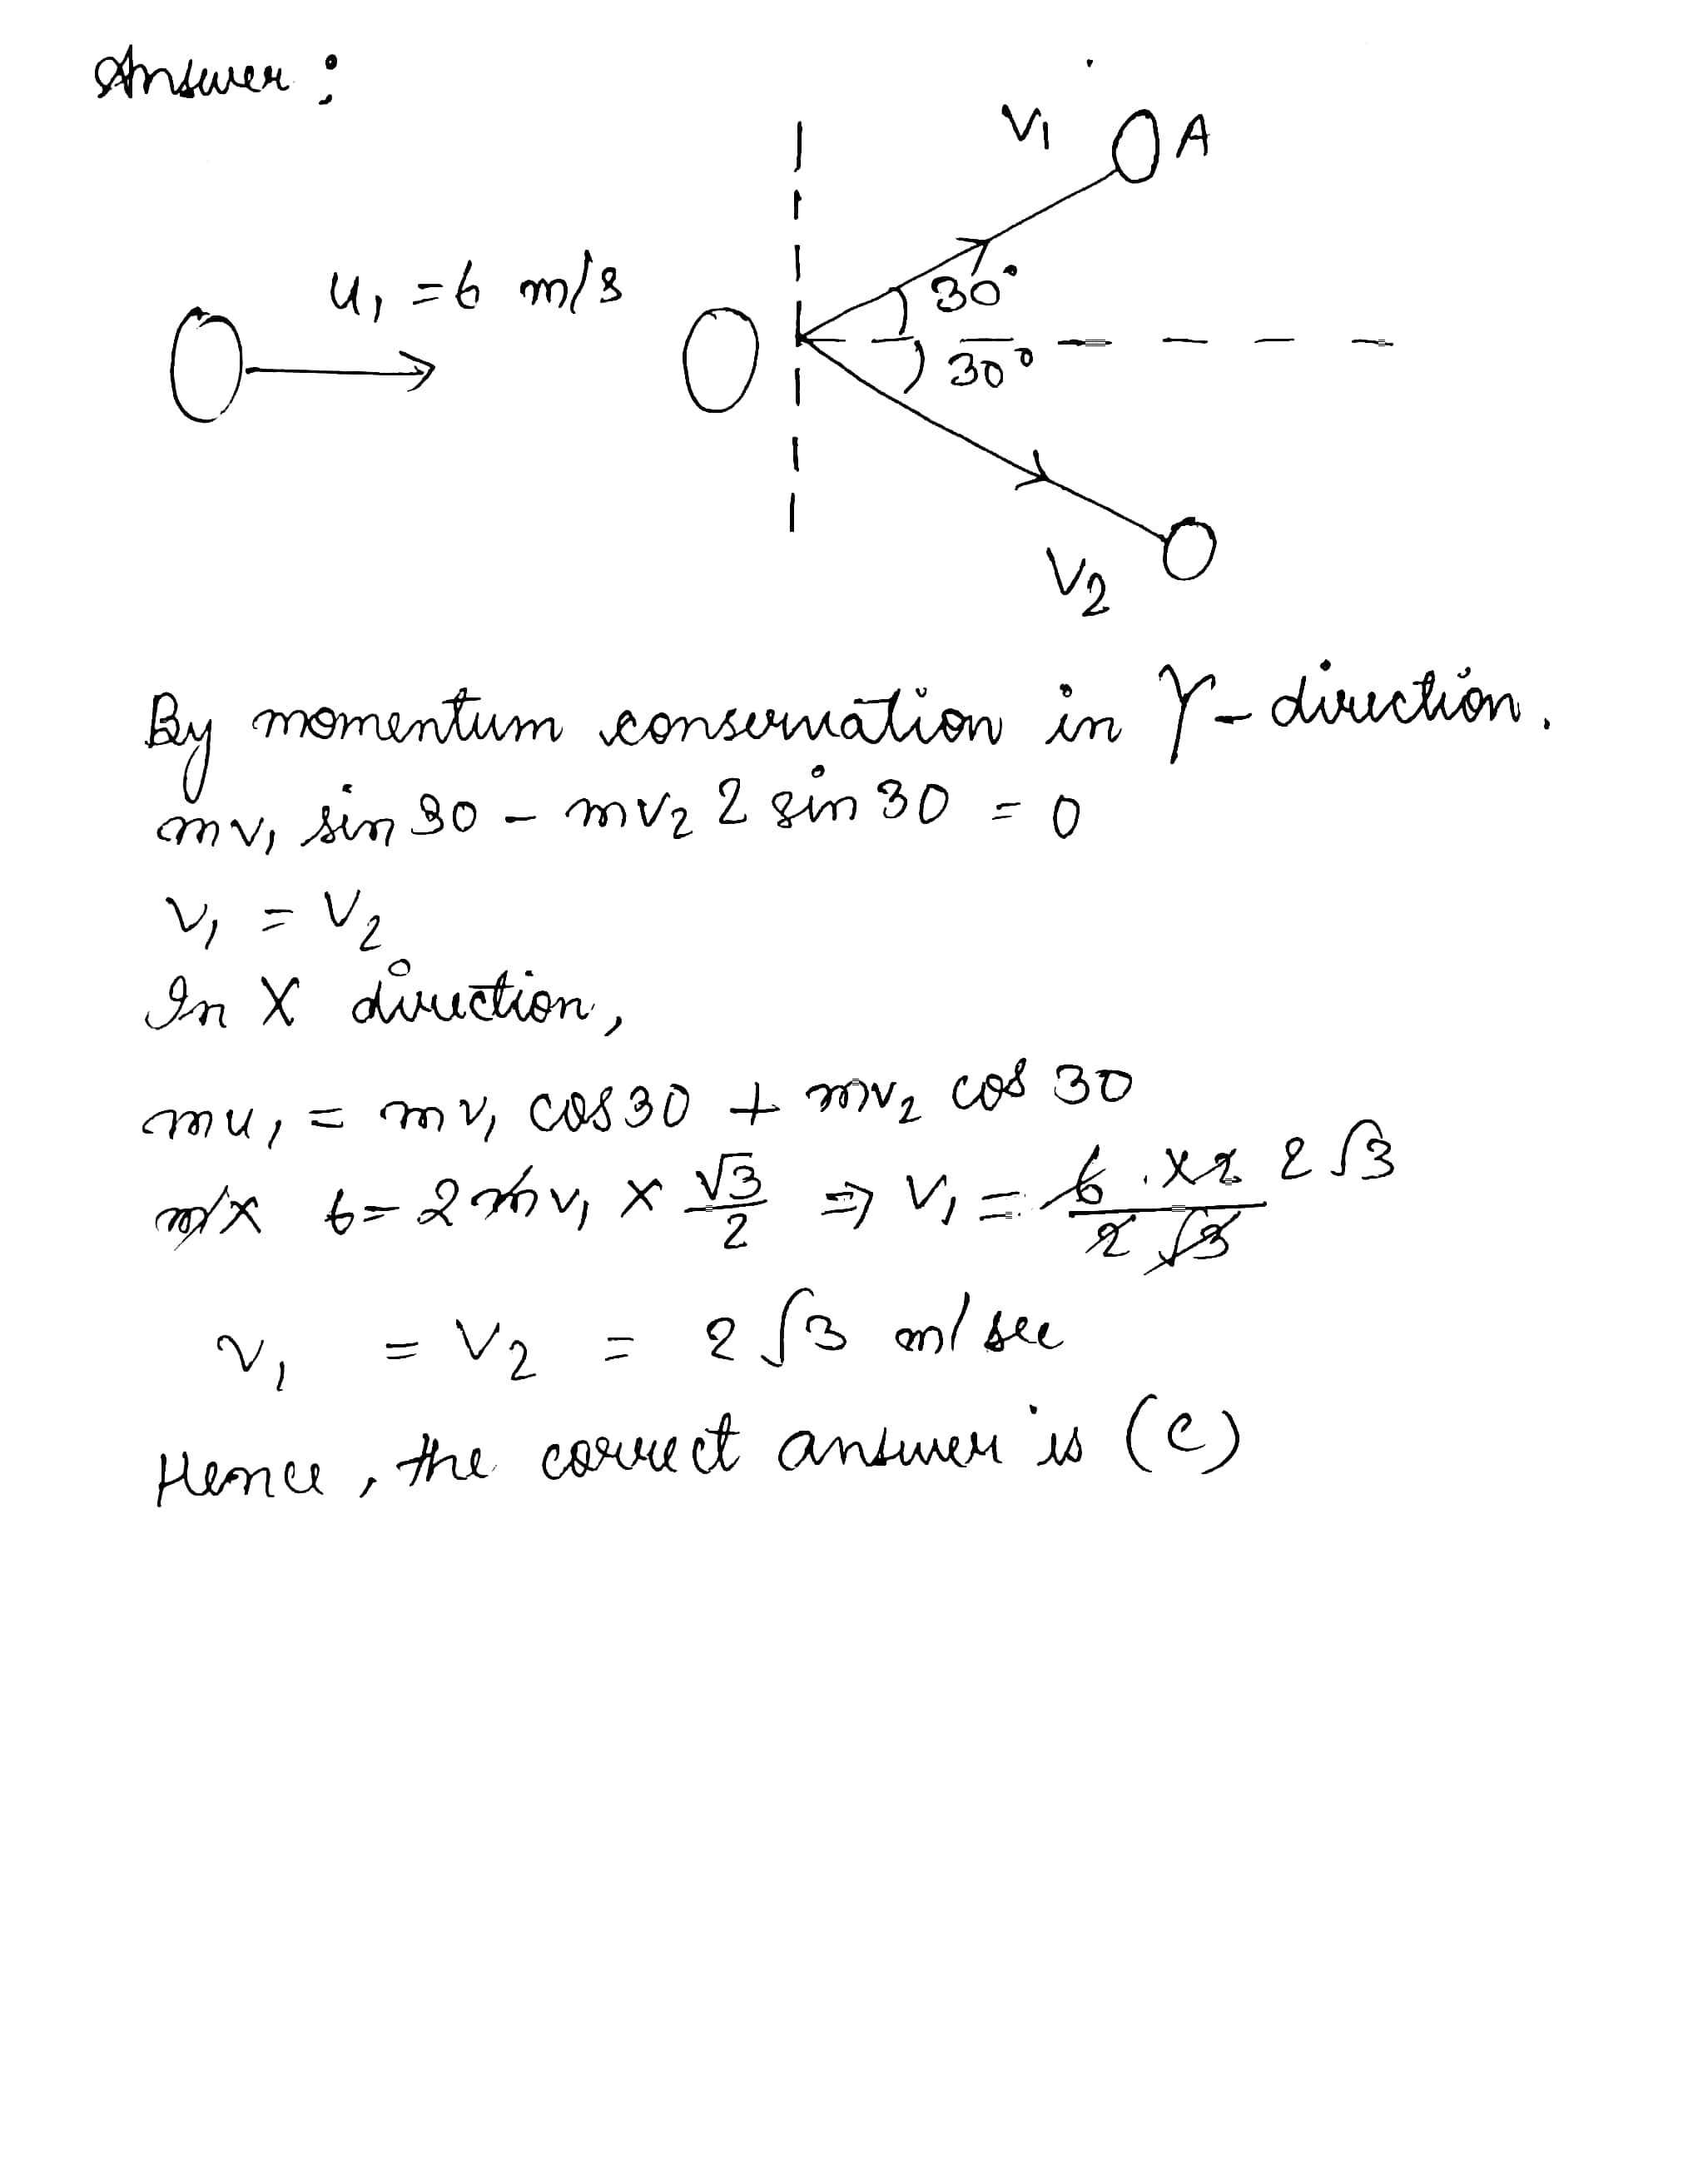 Answer :
V₁ A
u₁ = 6 m/s
30°
30°
V₂
By momentum conservation in Y - direction.
mv₁ sin 30 - mv₂ 2 sin 30 = 0
v₁ = v₂
In X direction,
mu₁ = mv₁ cos 30 + mv₂ cos 30
m × 6 = 2 mv₁ × √3/2 ⇒ V₁ = 6 × 2/2√3 2√3
v₁ = v₂ = 2√3 m/sec
Hence, the correct answer is (C)